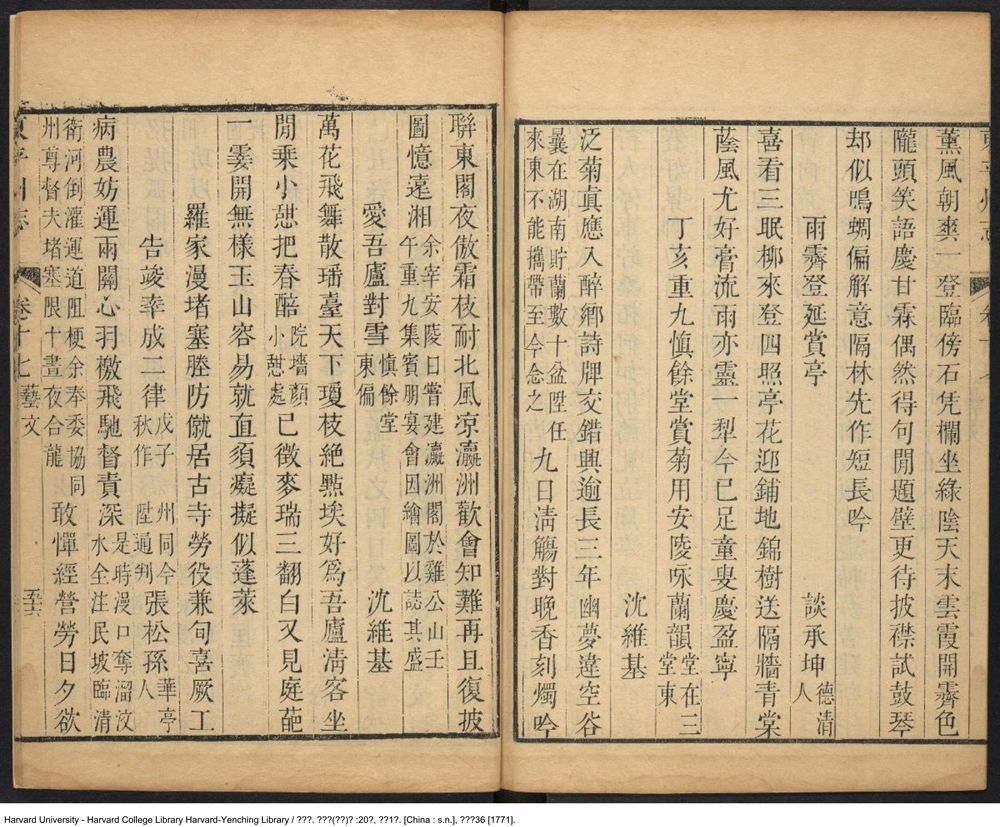 薰風朝爽一登臨傍石凭欄坐綠陰天末雲霞開霽色
隴頭笑語慶甘霖偶然得句閒題壁更待披襟試鼓琴
却似鳴蜩偏解意隔林先作短長吟
雨霽登延賞亭 談承坤 德清人
喜看三眠柳來登四照亭花迎鋪地錦樹送隔牆青棠
蔭風尤好膏流雨亦靈一犁今已足童叟慶盈寧
丁亥重九慎餘堂賞菊用安陵咏蘭韻 堂在三堂東
沈維基
泛菊真應入醉鄉詩牌交錯興逾長三年幽夢違空谷
曩在湖南貯蘭數十盆陞任
來東不能攜帶至今念之
九日清觴對晚香刻燭吟
聯東閣夜傲霜枝耐北風凉瀛洲歡會知難再且復披
圖憶遠湘
余宰安陵日嘗建瀛洲閣於雞公山壬
午重九集賓朋宴會因繪圖以誌其盛
愛吾廬對雪 慎餘堂東偏 沈維基
萬花飛舞散璠臺天下瓊枝絕㸃埃好爲吾廬清客坐
閒乘小憩把春醅
院墻顏
小憩處
已徵麥瑞三翻白又見庭葩
一霎開無樣玉山容易就直須癡擬似蓬萊
羅家漫堵塞塍防僦居古寺勞役兼旬喜厥工
告竣幸成二律 戊子秋作 州同今陞通判 張松孫 華亭人
病農妨運兩關心羽檄飛馳督責深
是時漫口奪溜汶
水全注民坡臨清
衛河倒灌運道阻梗余奉委協同
州尊督夫堵塞限十晝夜合龍
敢憚經營勞日夕欲
東平州志
卷十七 藝文
Harvard University - Harvard College Library Harvard-Yenching Library / ???. ???(??)? :20?, ??1?. [China : s.n.], ???36 [1771].